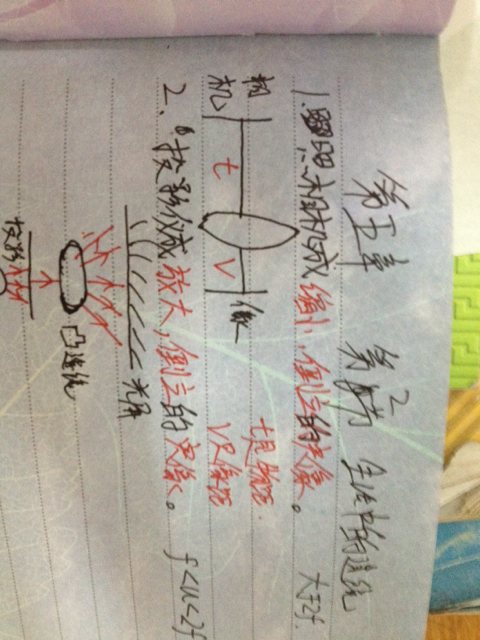 第五章 第2节 生活中的透镜
1.照相机成缩小,倒立的实像。 大于2f.
相机 t V 像
t是物距.
V是像距
2、投影仪成放大,倒立的实像。 f<u<2f
光屏
凸透镜
投影